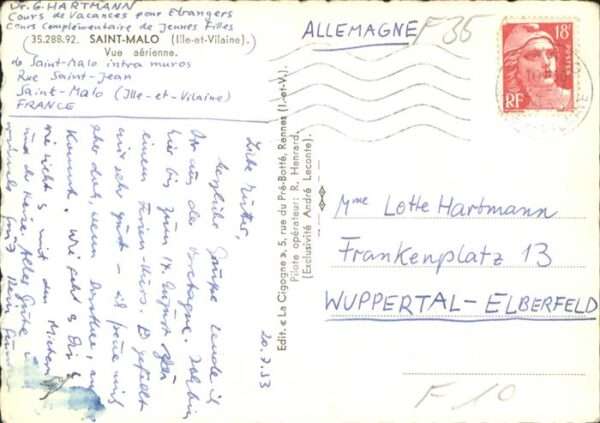 Dr. G. HARTMANN
Cours de Vacances pour Etrangers
Cours Complémentaire de Jeunes Filles
(35.288.92. SAINT-MALO (Ille-et-Vilaine).
Vue aérienne.
de Saint-Malo intra muros
Rue Saint-Jean
Saint-Malo (Ille-et-Vilaine)
FRANCE
20.7.53
Liebe Mutter,
herzliche Grüsse sende ich
Dir aus der Bretagne. Ich bin
hier bis zum 17. August
einem Ferien-Kurs. Es gefällt
mir sehr gut - ich freue mich
aber doch, wenn
kommt. Wie geht es Dir
wie steht es mit den
und der Reise. Alles Gute
Edit. « La Cigogne », 5, rue du Pré-Botté, Rennes (I.-et-V.).
Pilote opérateur: R. Henrard.
(Exclusivité André Leconte).
ALLEMAGNE
F 36
18F
POSTES
RF
Mme Lotte Hartmann
Frankenplatz 13
WUPPERTAL-ELBERFELD
F 10